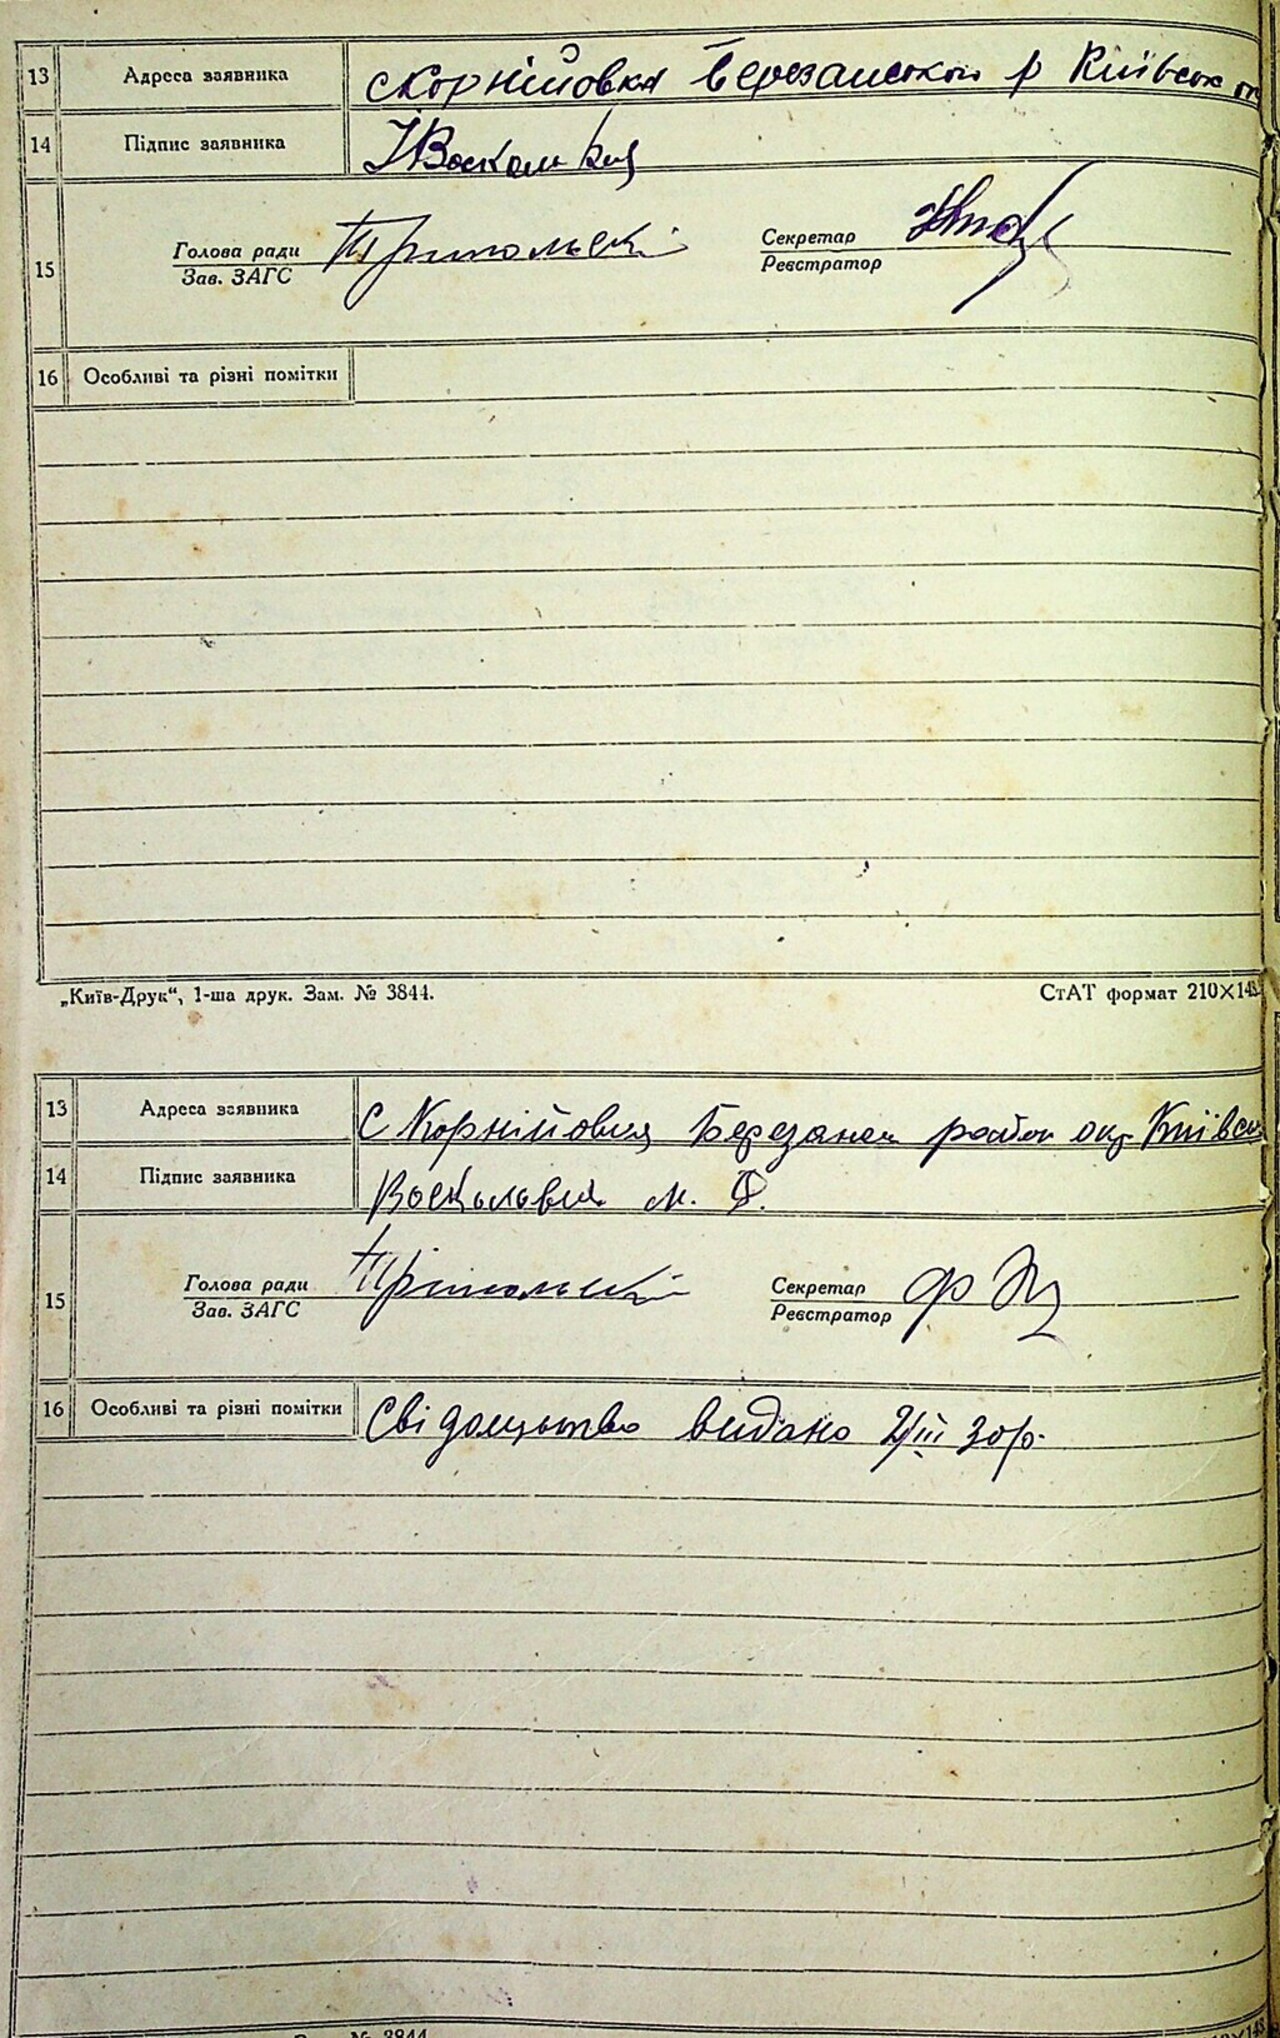 13 Адреса заявника с Корнійовка Березанського р Київськ ок
14 Підпис заявника
15 Голова ради Секретар
Зав. ЗАГС Реєстратор
16 Особливі та різні помітки
„Київ-Друк“, 1-ша друк. Зам. № 3844. СтАТ формат 210×148
13 Адреса заявника С Корнійовка Березанск район окр Київськ
14 Підпис заявника М. Ф.
15 Голова ради Секретар
Зав. ЗАГС Реєстратор
16 Особливі та різні помітки Свідоцьтво видано 2/III 30 р.
№ 3844